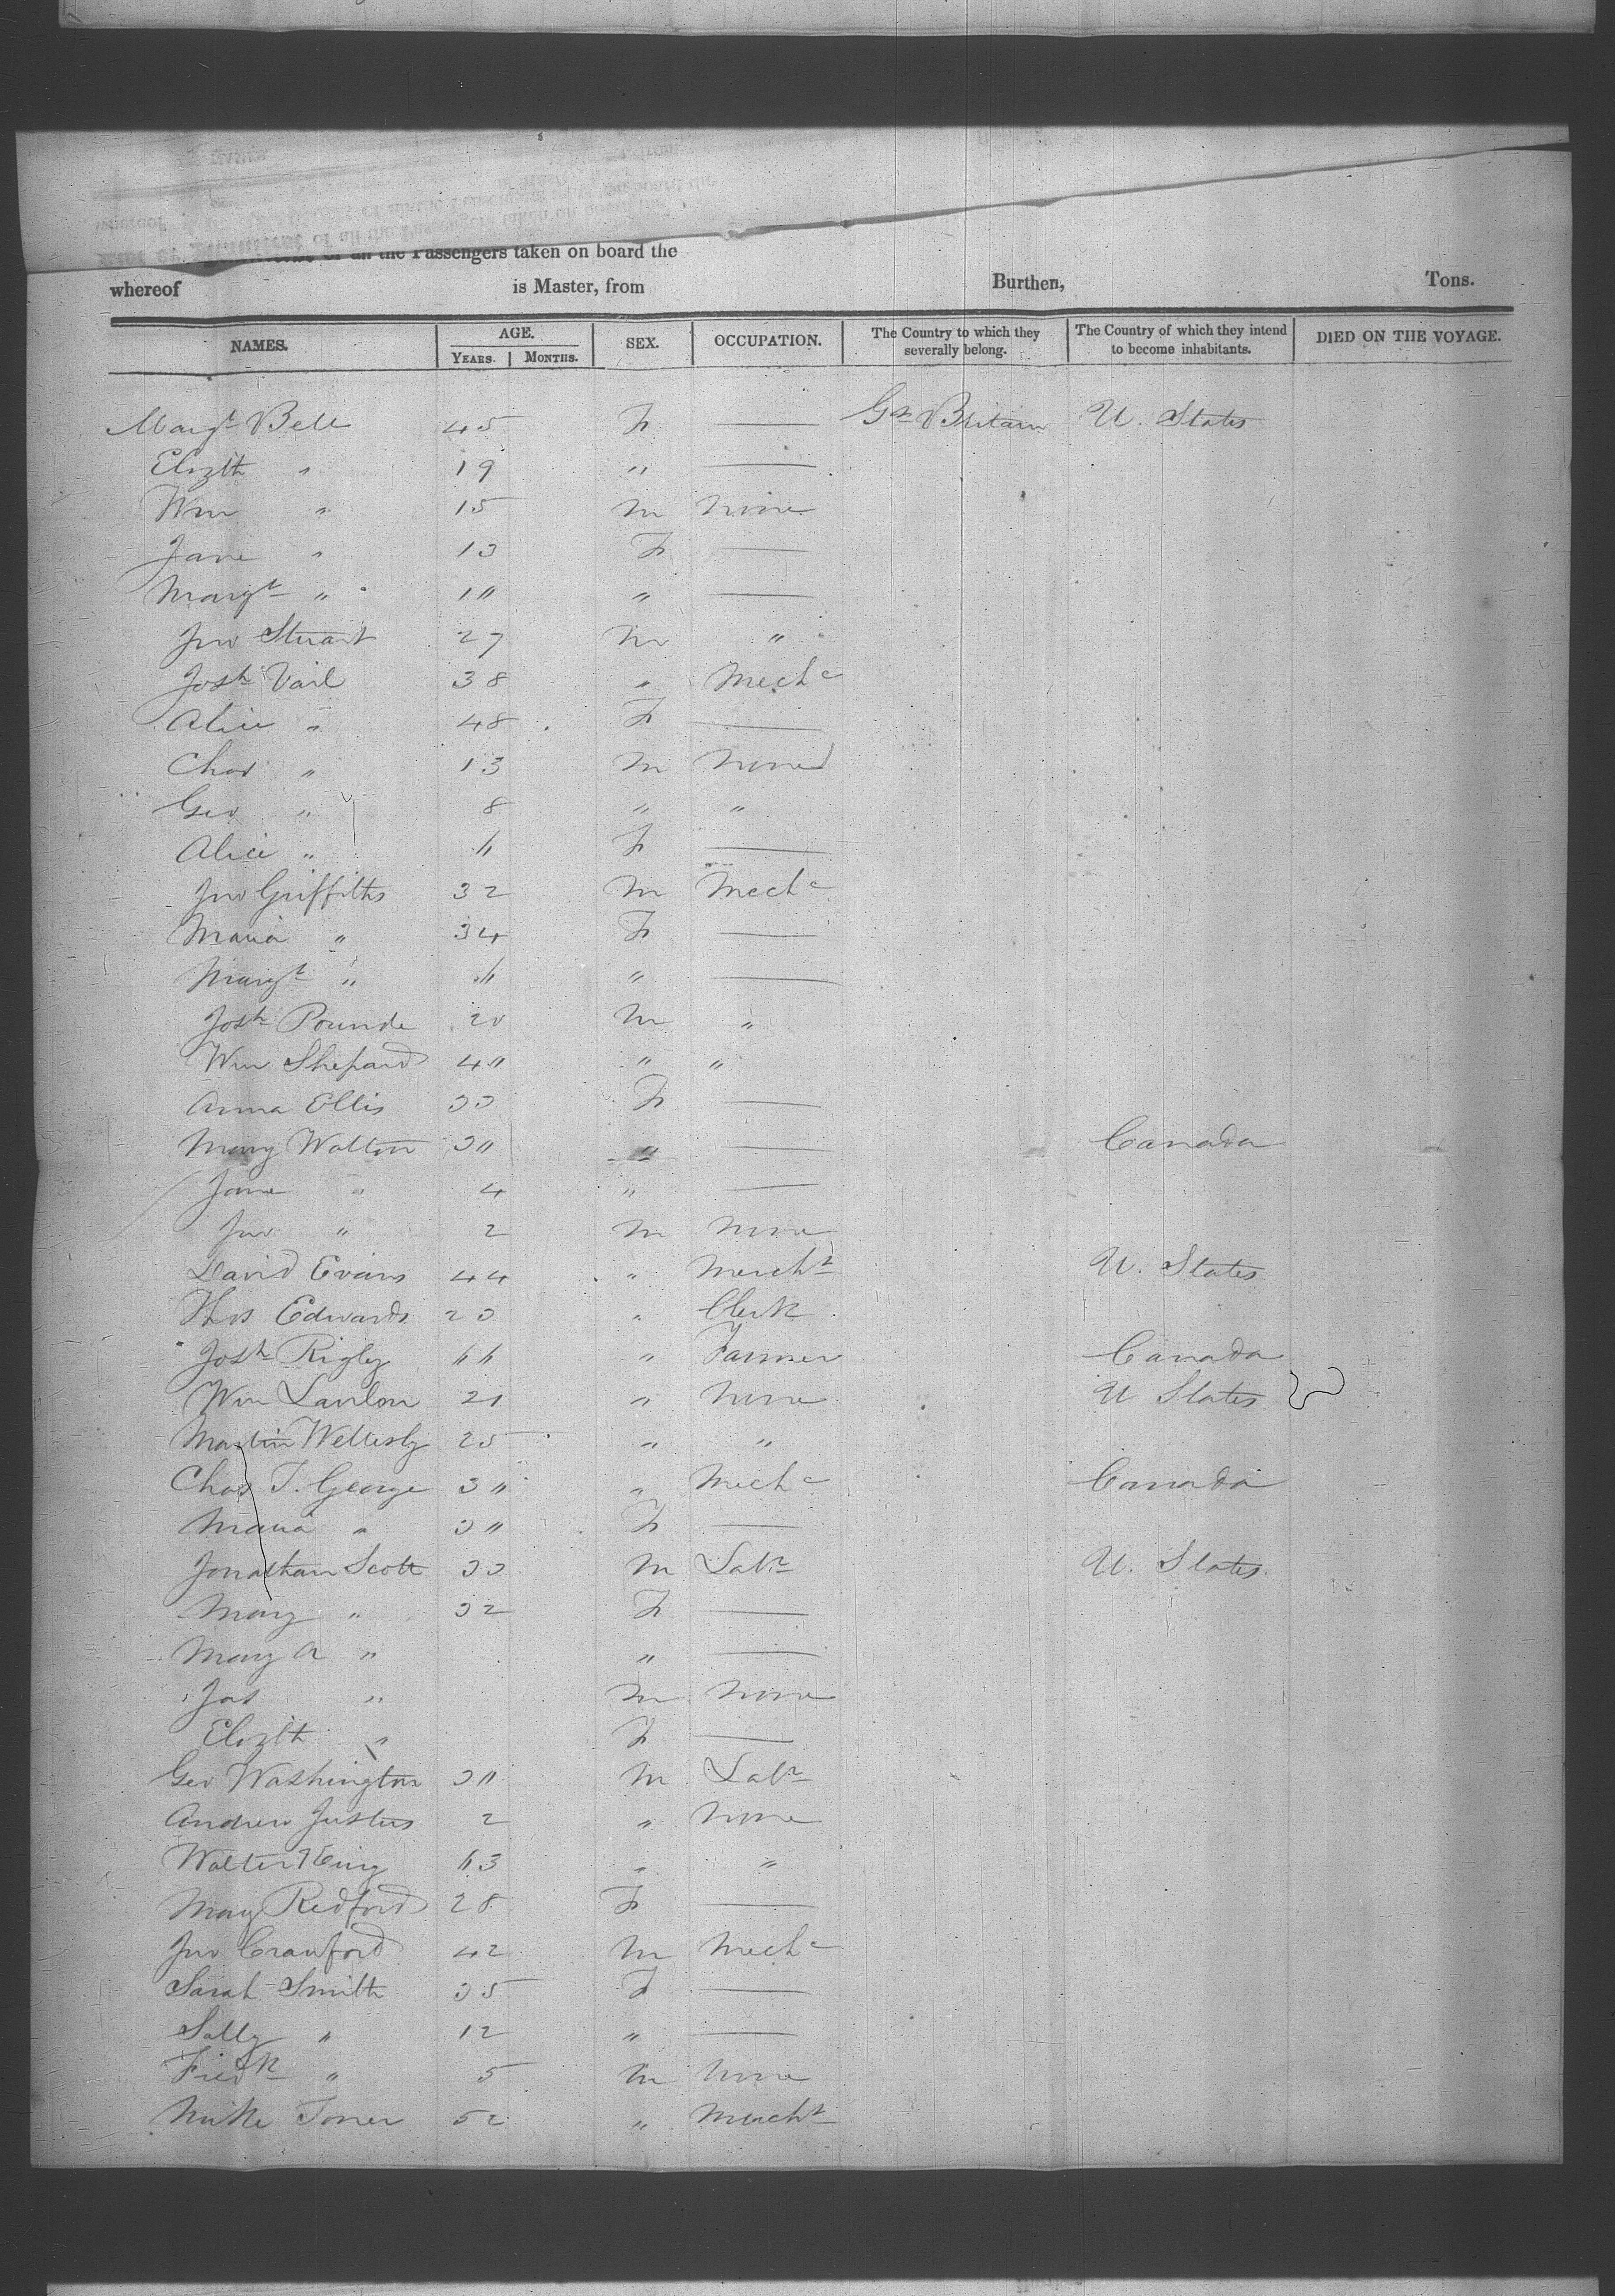 of all the Passengers taken on board the
whereof is Master, from Burthen, Tons.
NAMES. AGE. YEARS. MONTHS. SEX. OCCUPATION. The Country to which they severally belong. The Country of which they intend to become inhabitants. DIED ON THE VOYAGE.
Margt Bell 45 F — Gt Britain U. States
Elizth " 19 " —
Wm " 15 M None
Jane " 13 F —
Margt " 1" " —
Jno Stuart 27 M "
Josh Vail 38 " Mechc
Alice " 48 F —
Chas " 13 M None
Geo " 8 " "
Alice " F —
Jno Griffiths 32 M Mechc
Maria " 34 F —
Margt " " —
Josh Pounde 20 M "
Wm Shepard 4" " "
Anna Ellis 33 F —
Mary Walton 3" " — Canada
Jane " 4 " —
Jno " 2 M None
David Evans 44 " Mercht U. States
Thos Edwards 23 " Clerk
Josh Rigby " Farmer Canada
Wm Lawlon 21 " None U States
Martin Wellesly 25 " "
Chas T. George 3" " Mechc Canada
Maria " 3" F —
Jonathan Scott 33 M Labr U. States
Mary " 32 F —
Mary A " " —
Jas " M None
Elizth " F —
Geo Washington 3" M Labr
Andrew Justus 2 " None
Walter King " "
Mary Redford 28 F —
Jno Crawford 42 M Mechc
Sarah Smith 35 F —
Sally " 12 " —
Fredk " 5 M None
Mike Toner 52 " Mercht